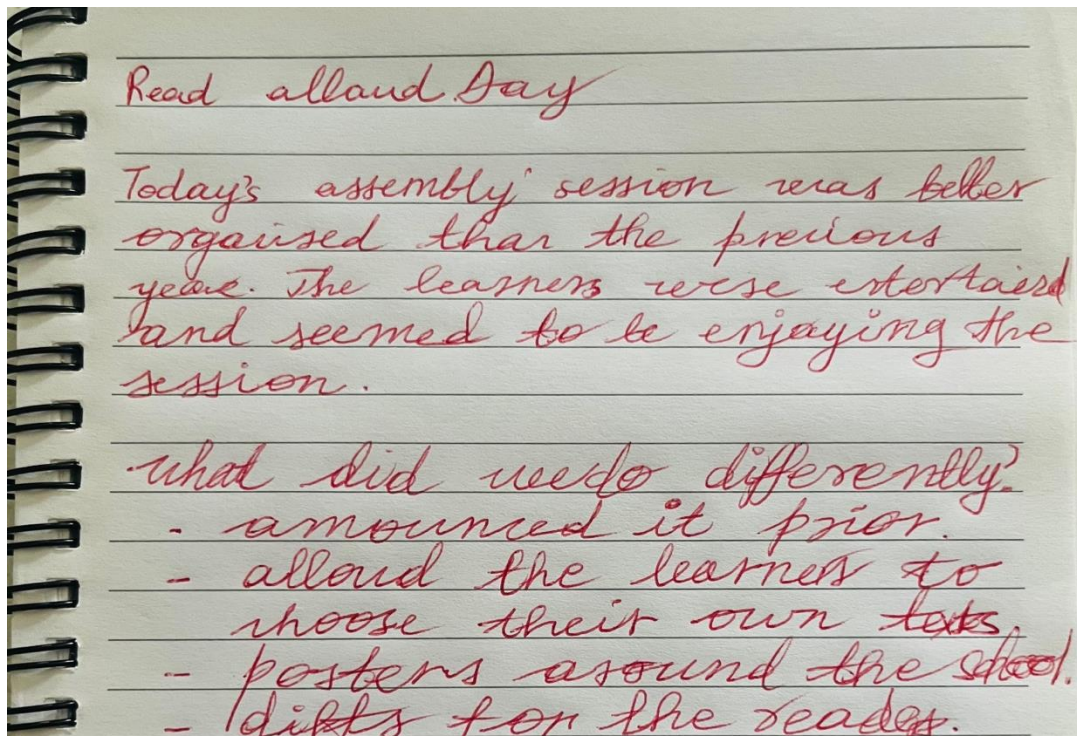 Read alloud Day
Today's assembly session was better
organised than the previous
year. The learners were entertained
and seemed to be enjoying the
session.
what did we do differently?
- announced it prior.
- alloud the learners to
choose their own texts.
- posters around the school.
- for the reader.